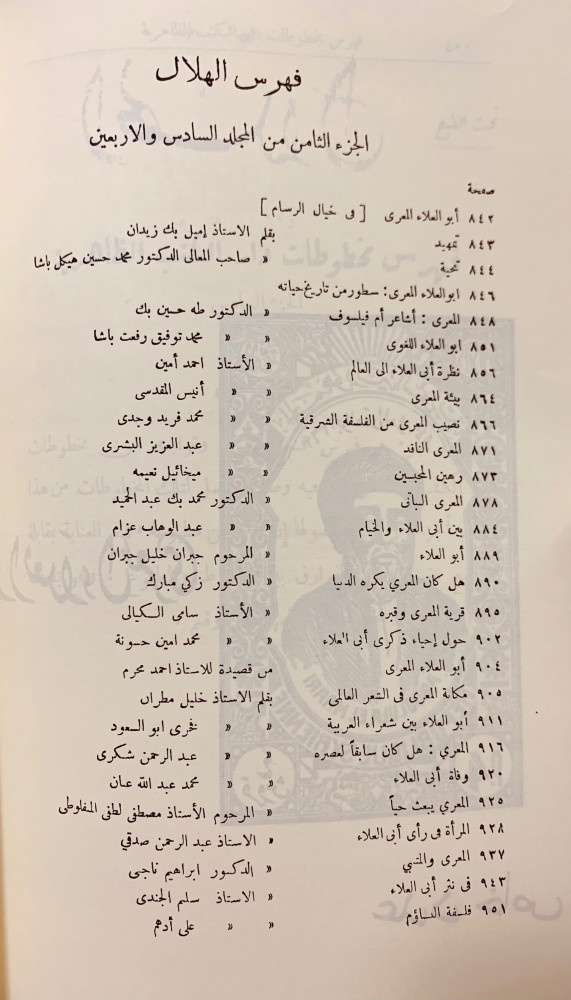 فهرس الهلال
الجزء الثامن من المجلد السادس والاربعين
صفحة
٨٤٢ أبو العلاء المعرى [ فى خيال الرسام ]
٨٤٣ تمهيد بقلم الاستاذ إميل بك زيدان
٨٤٤ تحية » صاحب المعالى الدكتور محمد حسين هيكل باشا
٨٤٦ ابو العلاء المعرى: سطور من تاريخ حياته
٨٤٨ المعرى : أشاعر أم فيلسوف » الدكتور طه حسين بك
٨٥١ ابو العلاء اللغوى » » محمد توفيق رفعت باشا
٨٥٦ نظرة أبى العلاء الى العالم » الأستاذ احمد أمين
٨٦٤ بيئة المعرى » » أنيس المقدسى
٨٦٦ نصيب المعرى من الفلسفة الشرقية » » محمد فريد وجدى
٨٧١ المعرى الناقد » » عبد العزيز البشرى
٨٧٣ رهين المحبسين » » ميخائيل نعيمه
٨٧٨ المعرى النباتى » الدكتور محمد بك عبد الحميد
٨٨٤ بين أبى العلاء والخيام » » عبد الوهاب عزام
٨٨٩ أبو العلاء » المرحوم جبران خليل جبران
٨٩٠ هل كان المعري يكره الدنيا » الدكتور زكي مبارك
٨٩٥ قرية المعرى وقبره » الأستاذ سامى الكيالى
٩٠٢ حول إحياء ذكرى أبى العلاء » » محمد امين حسونة
٩٠٤ أبو العلاء المعرى من قصيدة للاستاذ احمد محرم
٩٠٥ مكانة المعرى فى الشعر العالمى بقلم الاستاذ خليل مطران
٩١١ أبو العلاء بين شعراء العربية » » فخرى ابو السعود
٩١٦ المعري : هل كان سابقاً لعصره » » عبد الرحمن شكرى
٩٢٠ وفاة أبى العلاء » » محمد عبد الله عنان
٩٢٥ المعري يبعث حياً » المرحوم الأستاذ مصطفى لطفى المنفلوطى
٩٢٨ المرأة فى رأى أبى العلاء » الاستاذ عبد الرحمن صدقي
٩٣٧ المعرى والمتنبي » الدكتور ابراهيم ناجى
٩٤٣ فى نثر أبى العلاء » الاستاذ سليم الجندى
٩٥١ فلسفة التشاؤم » » على أدهم